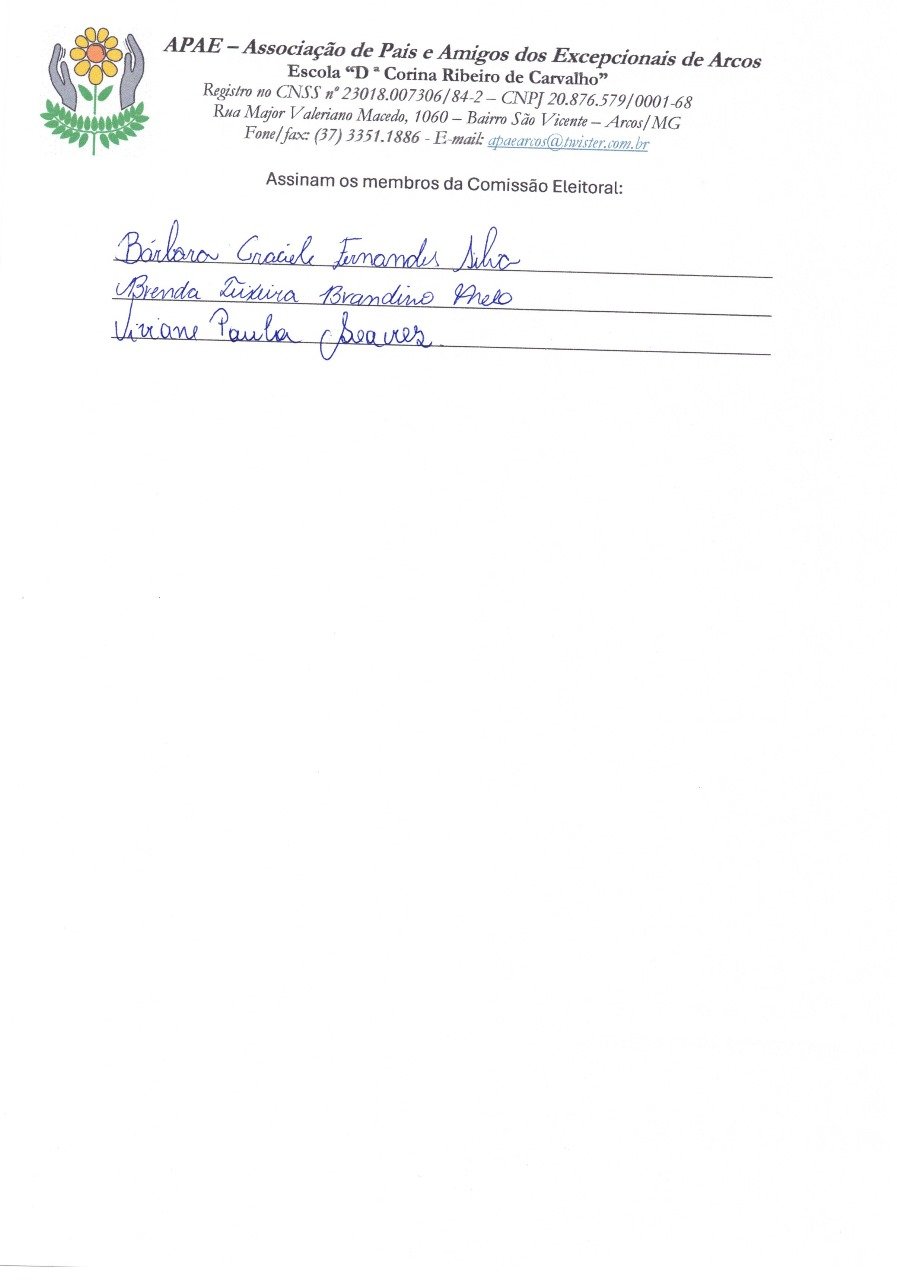 APAE – Associação de Pais e Amigos dos Excepcionais de Arcos
Escola “D ª Corina Ribeiro de Carvalho”
Registro no CNSS nº 23018.007306/84-2 – CNPJ 20.876.579/0001-68
Rua Major Valeriano Macedo, 1060 – Bairro São Vicente – Arcos/MG
Fone/fax: (37) 3351.1886 - E-mail: apaearcos@twister.com.br
Assinam os membros da Comissão Eleitoral:
Bárbara Graciele Fernandes Silva
Brenda Teixeira Brandino Melo
Viviane Paula Soares